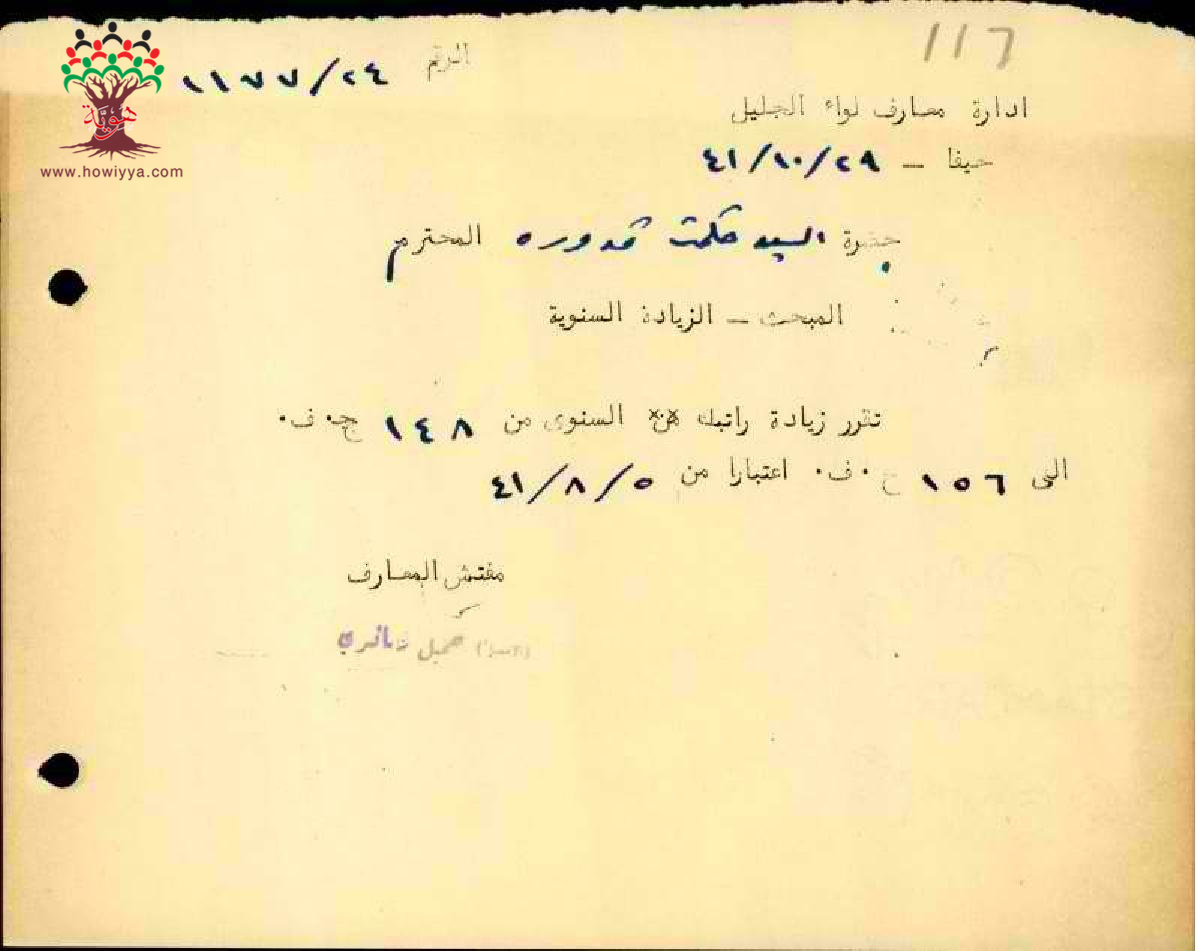 117
الرقم ١١٧٧/٢٤
هوية
www.howiyya.com
ادارة معارف لواء الجليل
حيفا – ٤١/١٠/٢٩
حضرة السيد حكمت قدوره المحترم
المبحث – الزيادة السنوية
تقرر زيادة راتبك السنوى من ١٤٨ ج.ف.
الى ١٥٦ ج.ف. اعتبارا من ٤١/٨/٥
مفتش المعارف
جميل